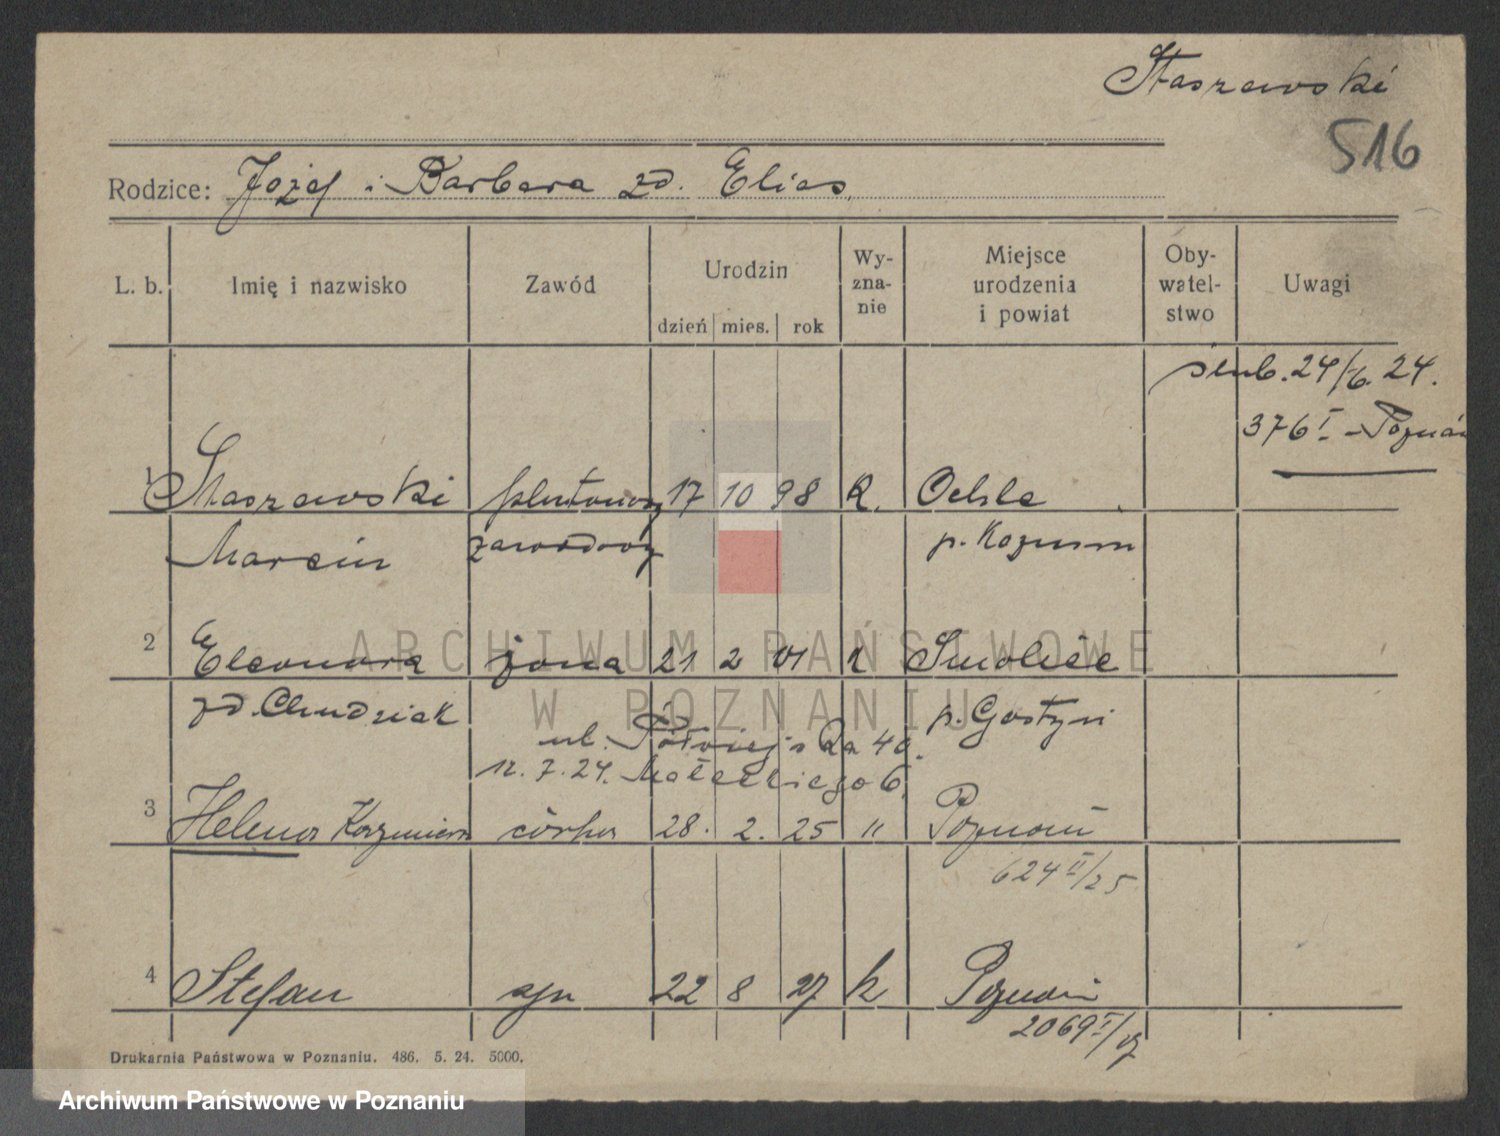 Staszewski
516
Rodzice: Józef i Barbara zd. Elias
L. b. Imię i nazwisko Zawód Urodzin dzień mies. rok Wy-zna-nie Miejsce urodzenia i powiat Oby-watel-stwo Uwagi
ślub. 24/6. 24.
376 I - Poznań
1 Staszewski plutonowy 17 10 98 k.
Marcin zawodowy p. Kozmin
2 Eleonora żona 21 2 01 k Smolice
zd. Chudziak p. Gostyń
ul. Półwiejska 40.
12. 7. 24. Małeckiego 6.
3 Helena Kazimiera córka 28. 2. 25 " Poznań
624 II/25
4 Stefan syn 22 8 27 k Poznań
2069 I/27
Drukarnia Państwowa w Poznaniu. 486. 5. 24. 5000.
ARCHIWUM PAŃSTWOWE
W POZNANIU
Archiwum Państwowe w Poznaniu